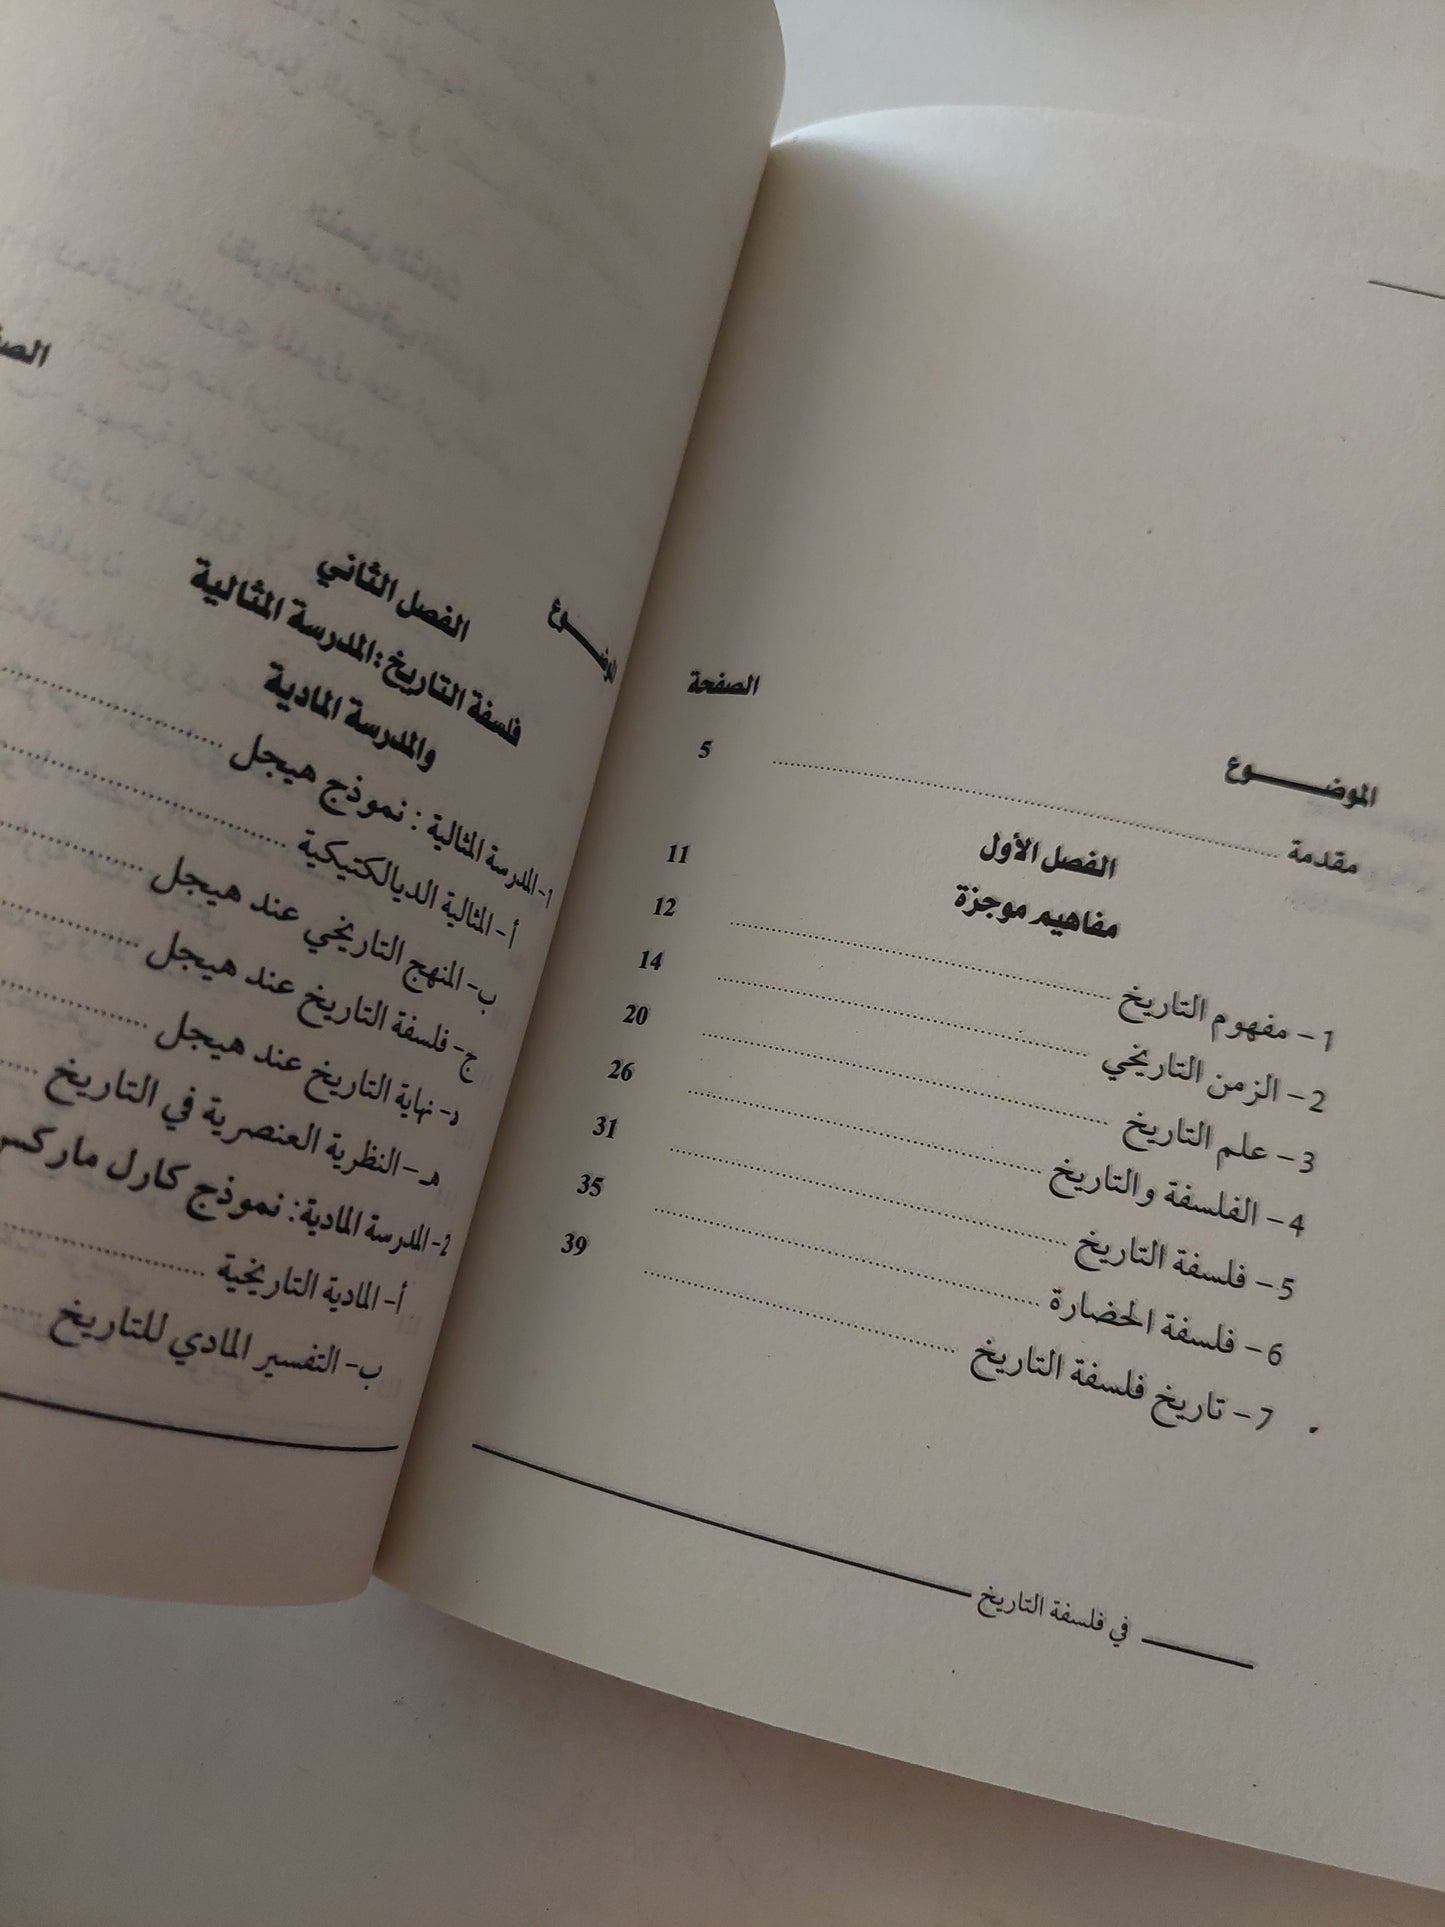 الموضـــــوع الصفحة
مقدمة ........ 5
الفصل الأول
مفاهيم موجزة 11
1 – مفهوم التاريخ ........ 12
2 – الزمن التاريخي ........ 14
3 – علم التاريخ ........ 20
4 – الفلسفة والتاريخ ........ 26
5 – فلسفة التاريخ ........ 31
6 – فلسفة الحضارة ........ 35
7 – تاريخ فلسفة التاريخ ........ 39
في فلسفة التاريخ
الموضـــــوع
الفصل الثاني
فلسفة التاريخ: المدرسة المثالية
والمدرسة المادية
1- المدرسة المثالية : نموذج هيجل ........
أ- المثالية الديالكتيكية ........
ب- المنهج التاريخي عند هيجل ........
ج- فلسفة التاريخ عند هيجل ........
د- نهاية التاريخ عند هيجل ........
هـ – النظرية العنصرية في التاريخ ........
2- المدرسة المادية: نموذج كارل ماركس
أ- المادية التاريخية ........
ب- التفسير المادي للتاريخ ........